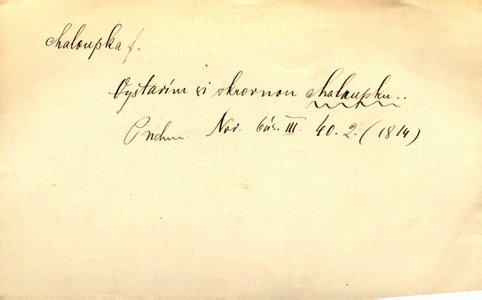 chaloupka f.
Vystavím si skrovnou chaloupku..
Puchm. Nov. bás. III. 40. 2. (1814)